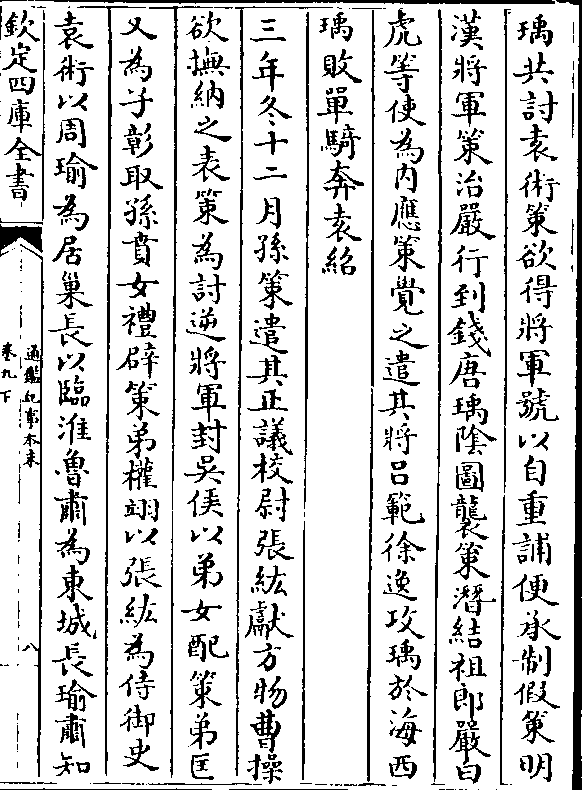 瑀共討袁術策欲得將軍號以自重誧便承制假策明
漢將軍策治嚴行到錢唐瑀陰圖襲策潛結祖郎嚴白
虎等使為内應策覺之遣其將吕範徐逸攻瑀於海西
瑀敗單騎奔袁紹
三年冬十二月孫策遣其正議校尉張紘獻方物曹操
欲撫納之表策為討逆將軍封吳侯以弟女配策弟匡
又為子彰取孫賁女禮辟策弟權翊以張紘為侍御史
袁術以周瑜為居巢長以臨淮魯肅為東城長瑜肅知
欽定四庫全書
通鑑紀事本末
卷九下
八